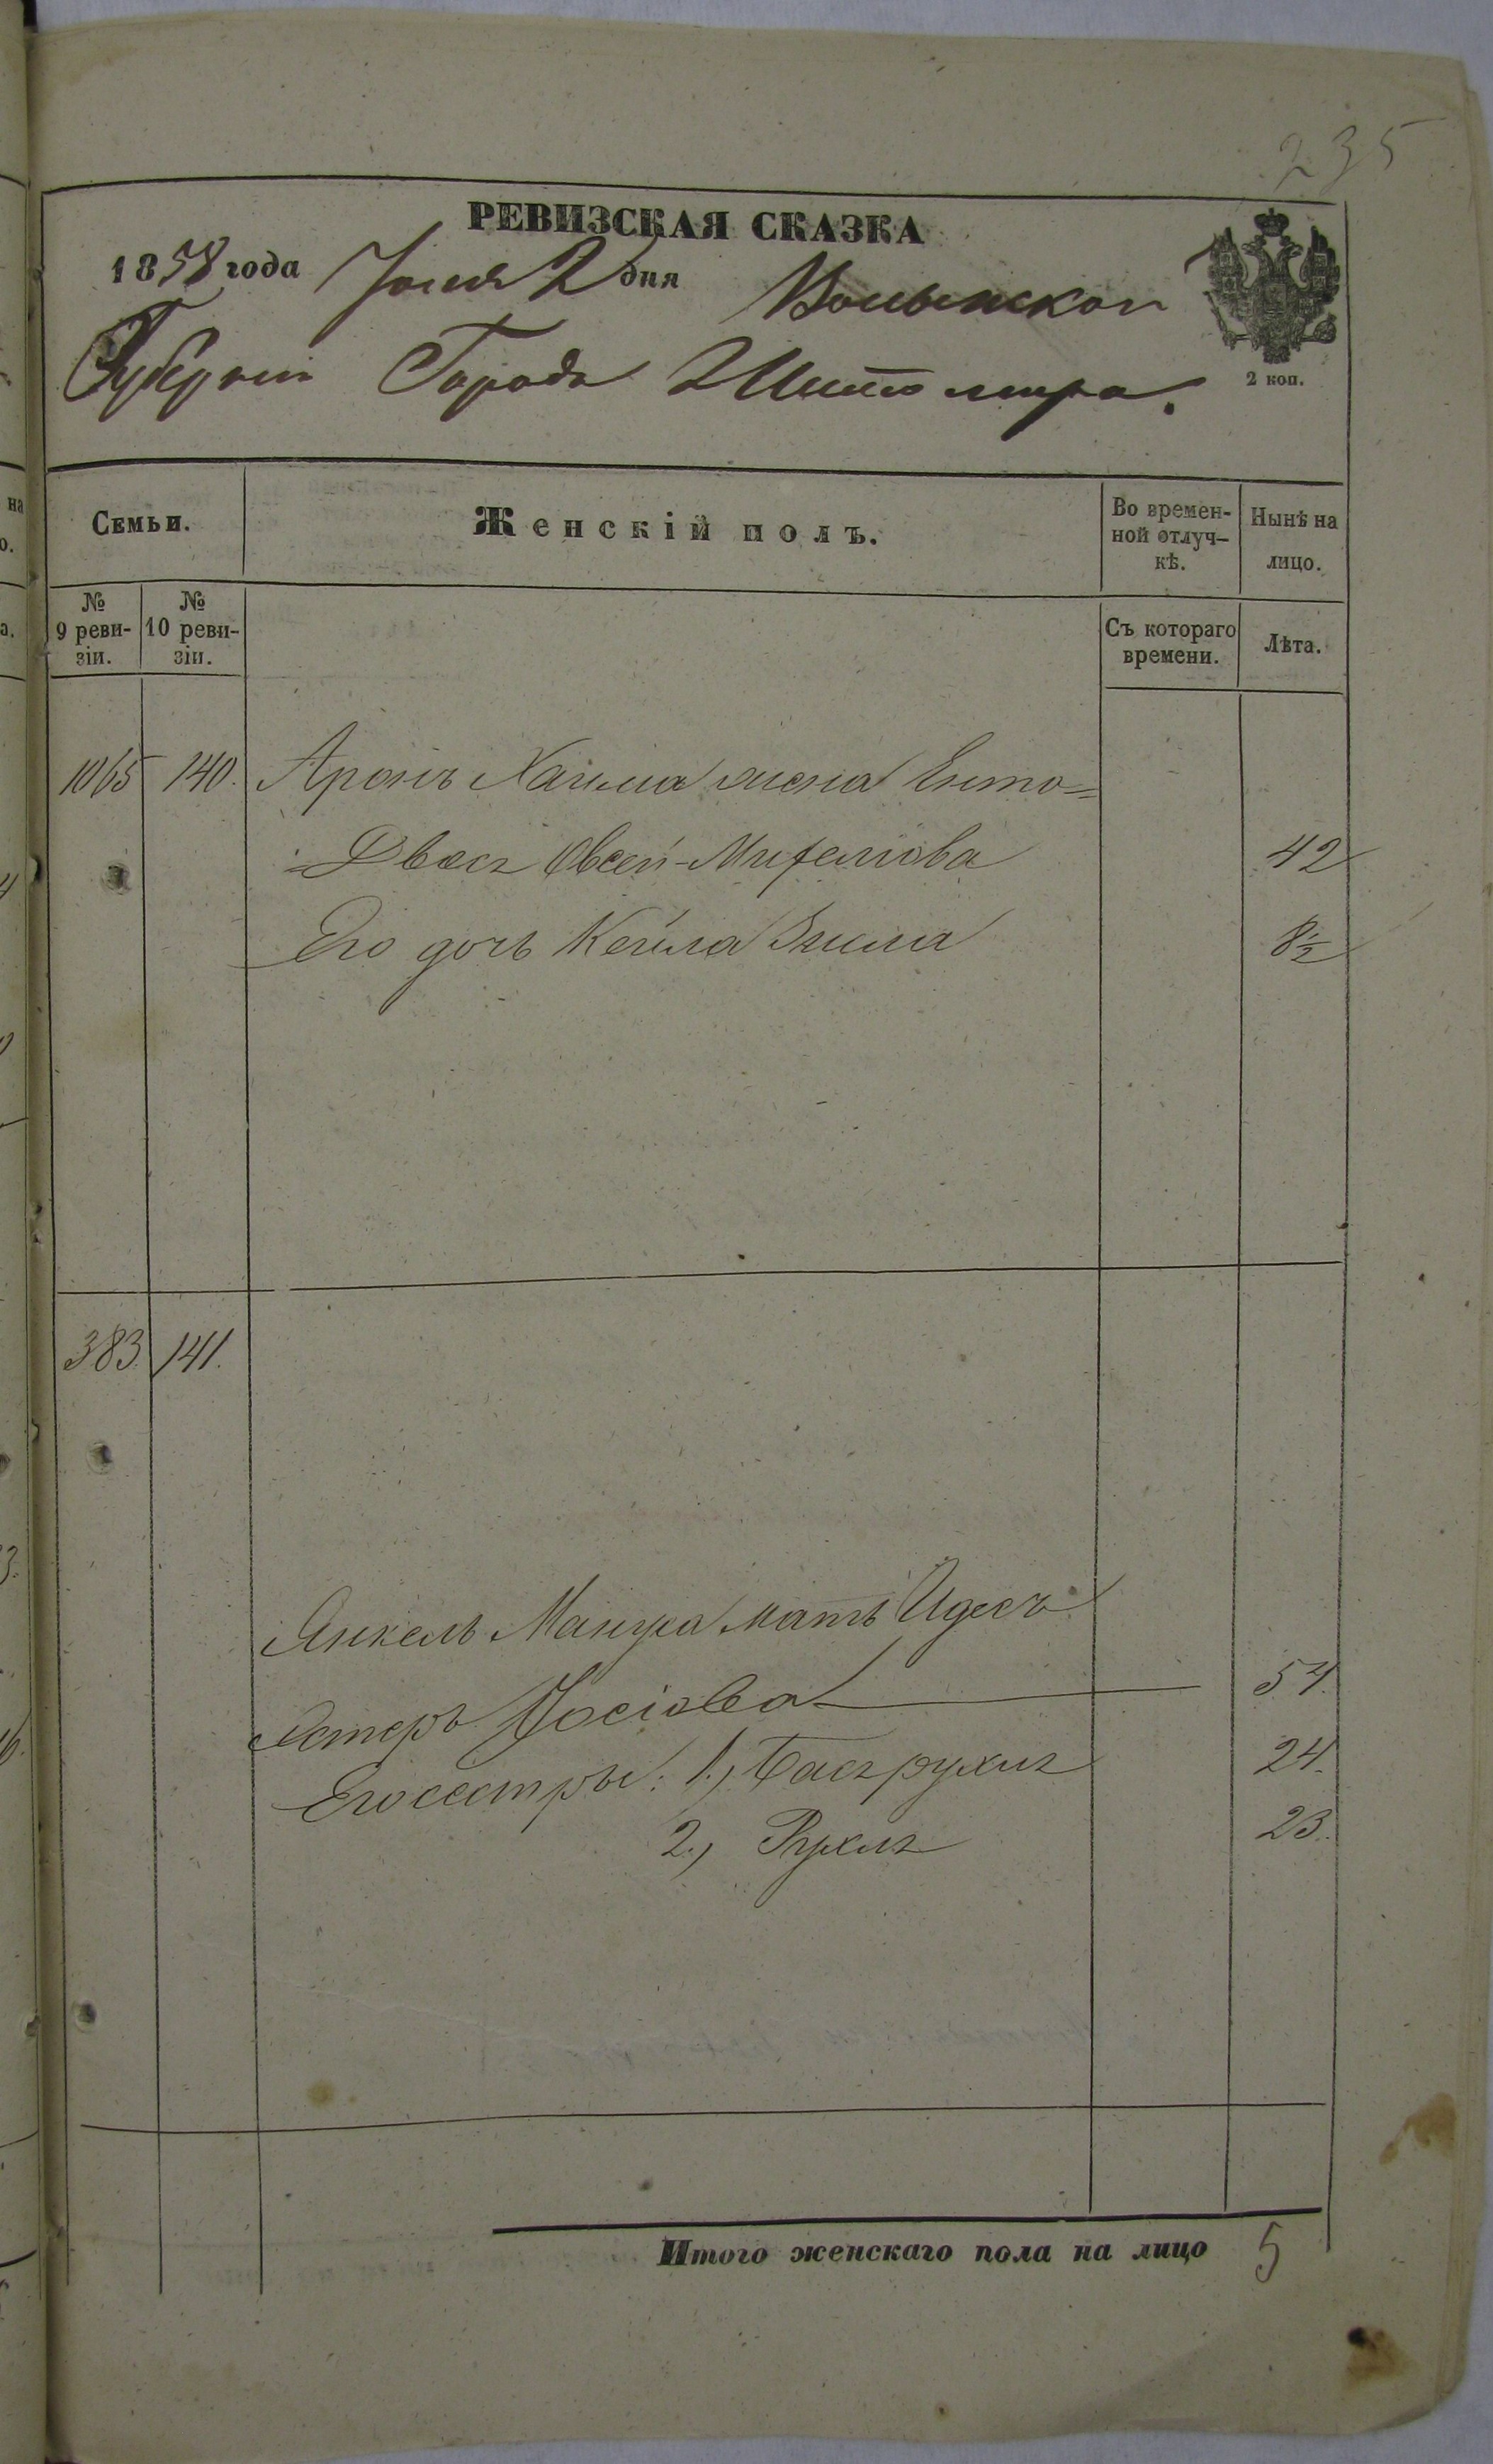 235
РЕВИЗСКАЯ СКАЗКА
1858 года Іюля 2 дня Волынской
Губерніи Города Житомира.
2 коп.
Семьи.
Женскій полъ.
Во времен-
ной отлуч-
кѣ.
Нынѣ на
лицо.
№
9 реви-
зіи.
№
10 реви-
зіи.
Съ котораго
времени.
Лѣта.
1065 140. Аронъ Хаима жена Ента=
=Двося Овсей-Мифеліова 42
Его дочь Кейла Зисля 8½
383. 141.
Янкель Мануса мать Идесъ
Эстеръ Іосіова 54.
Его сестры: 1.) Басярухля 24.
2.) Рухля 23.
Итого женскаго пола на лицо 5